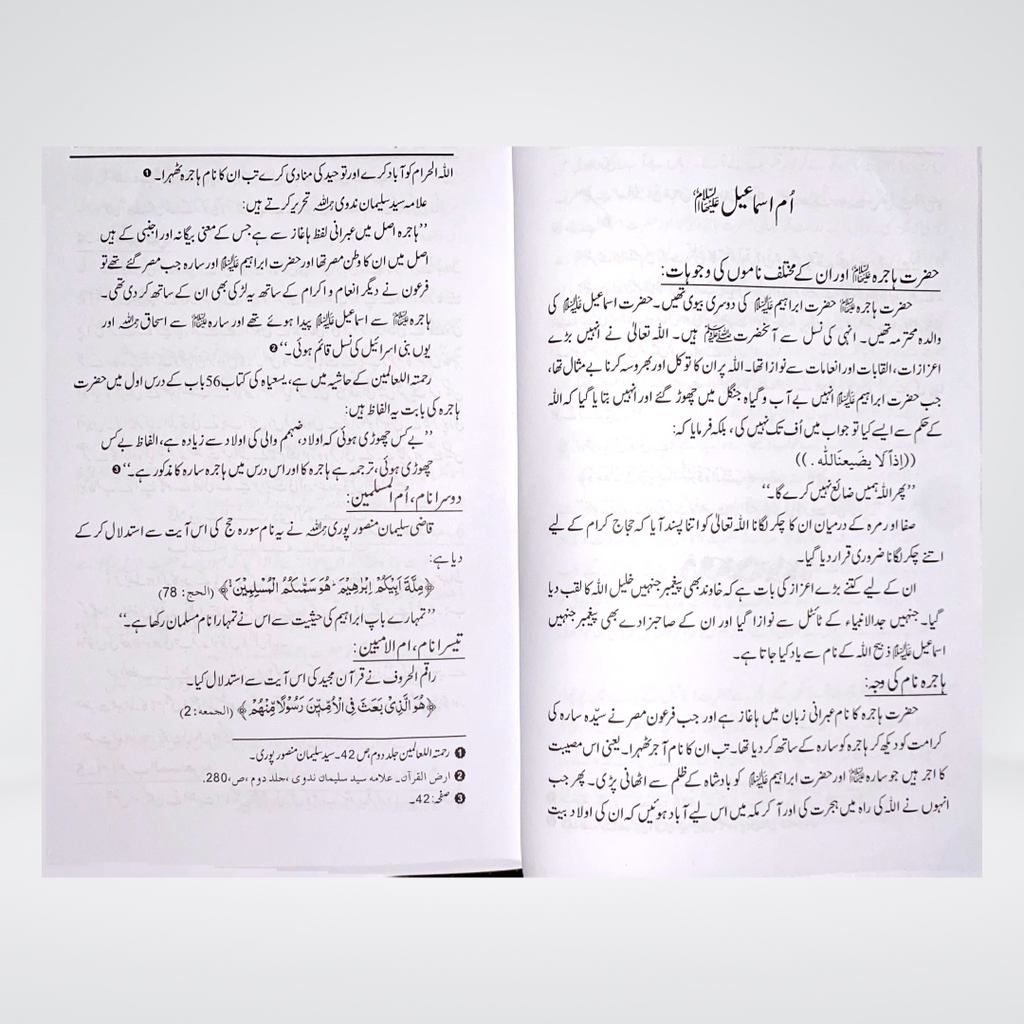 اُم اسماعیل علیہا السلام
حضرت ہاجرہ علیہا السلام اور ان کے مختلف ناموں کی وجوہات:
حضرت ہاجرہ علیہا السلام حضرت ابراہیم علیہ السلام کی دوسری بیوی تھیں۔ حضرت اسماعیل علیہ السلام کی
والدہ محترمہ تھیں۔ انہی کی نسل سے آنحضرت ﷺ ہیں۔ اللہ تعالیٰ نے انہیں بڑے
اعزازات، القابات اور انعامات سے نوازا تھا۔ اللہ پر ان کا توکل اور بھروسہ کرنا بے مثال تھا،
جب حضرت ابراہیم علیہ السلام انہیں بے آب و گیاہ جنگل میں چھوڑ گئے اور انہیں بتایا گیا کہ اللہ
کے حکم سے ایسے کیا تو جواب میں اُف تک نہیں کی، بلکہ فرمایا کہ:
((اِذاً لَا یضَیعنَاللہ .))
’’پھر اللہ ہمیں ضائع نہیں کرے گا۔‘‘
صفا اور مرہ کے درمیان ان کا چکر لگانا اللہ تعالیٰ کو اتنا پسند آیا کہ حجاج کرام کے لیے
اتنے چکر لگانا ضروری قرار دیا گیا۔
ان کے لیے کتنے بڑے اعزاز کی بات ہے کہ خاوند بھی پیغمبر جنہیں خلیل اللہ کا لقب دیا
گیا۔ جنہیں جد الانبیاء کے ٹائٹل سے نوازا گیا اور ان کے صاحبزادے بھی پیغمبر جنہیں
اسماعیل علیہ السلام ذبیح اللہ کے نام سے یاد کیا جاتا ہے۔
ہاجرہ نام کی وجہ:
حضرت ہاجرہ کا نام عبرانی زبان میں ہاغاز ہے اور جب فرعون مصر نے سیّدہ سارہ کی
کرامت کو دیکھ کر ہاجرہ کو سارہ کے ساتھ کر دیا تھا۔ تب ان کا نام آجر ٹھہرا۔ یعنی اس مصیبت
کا اجر ہیں جو سارہ علیہا السلام اور حضرت ابراہیم علیہ السلام کو بادشاہ کے ظلم سے اٹھانی پڑی۔ پھر جب
انہوں نے اللہ کی راہ میں ہجرت کی اور آ کر مکہ میں اس لیے آباد ہوئیں کہ ان کی اولاد بیت
اللہ الحرام کو آباد کرے اور توحید کی منادی کرے تب ان کا نام ہاجرہ ٹھہرا۔ ❶
علامہ سید سلیمان ندوی رحمہ اللہ تحریر کرتے ہیں:
’’ہاجرہ اصل میں عبرانی لفظ ہاغاز سے ہے جس کے معنی بیگانہ اور اجنبی کے ہیں
اصل میں ان کا وطن مصر تھا اور حضرت ابراہیم علیہ السلام اور سارہ جب مصر گئے تھے تو
فرعون نے دیگر انعام و اکرام کے ساتھ یہ لڑکی بھی ان کے ساتھ کر دی تھی۔
ہاجرہ علیہا السلام سے اسماعیل علیہ السلام پیدا ہوئے تھے اور سارہ علیہا السلام سے اسحاق رحمہ اللہ اور
یوں بنی اسرائیل کی نسل قائم ہوئی۔‘‘ ❷
رحمتہ اللعالمین کے حاشیہ میں ہے، یسعیاہ کی کتاب 56 باب کے درس اول میں حضرت
ہاجرہ کی بابت یہ الفاظ ہیں:
’’بے کس چھوڑی ہوئی کہ اولاد، ضہمم والی کی اولاد سے زیادہ ہے، الفاظ بے کس
چھوڑی ہوئی، ترجمہ ہے ہاجرہ کا اور اس درس میں ہاجرہ سارہ کا مذکور ہے۔‘‘ ❸
دوسرا نام، اُم المسلمین:
قاضی سلیمان منصور پوری رحمہ اللہ نے یہ نام سورہ حج کی اس آیت سے استدلال کر کے
دیا ہے:
﴿مِلَّةَ اَبِيْكُمْ اِبْرٰهِيْمَ ۭ هُوَ سَمّٰىكُمُ الْمُسْلِمِيْنَ﴾ (الحج: 78)
’’تمہارے باپ ابراہیم کی حیثیت سے اس نے تمہارا نام مسلمان رکھا ہے۔‘‘
تیسرا نام، ام الامیین:
راقم الحروف نے قرآن مجید کی اس آیت سے استدلال کیا۔
﴿هُوَ الَّذِيْ بَعَثَ فِي الْاُمِّيّٖنَ رَسُوْلًا مِّنْهُمْ﴾ (الجمعه: 2)
❶ رحمتہ اللعالمین جلد دوم، ص 42۔ سید سلیمان منصور پوری۔
❷ ارض القرآن۔ علامہ سید سلیمان ندوی، جلد دوم، ص، 280۔
❸ صفحہ: 42۔